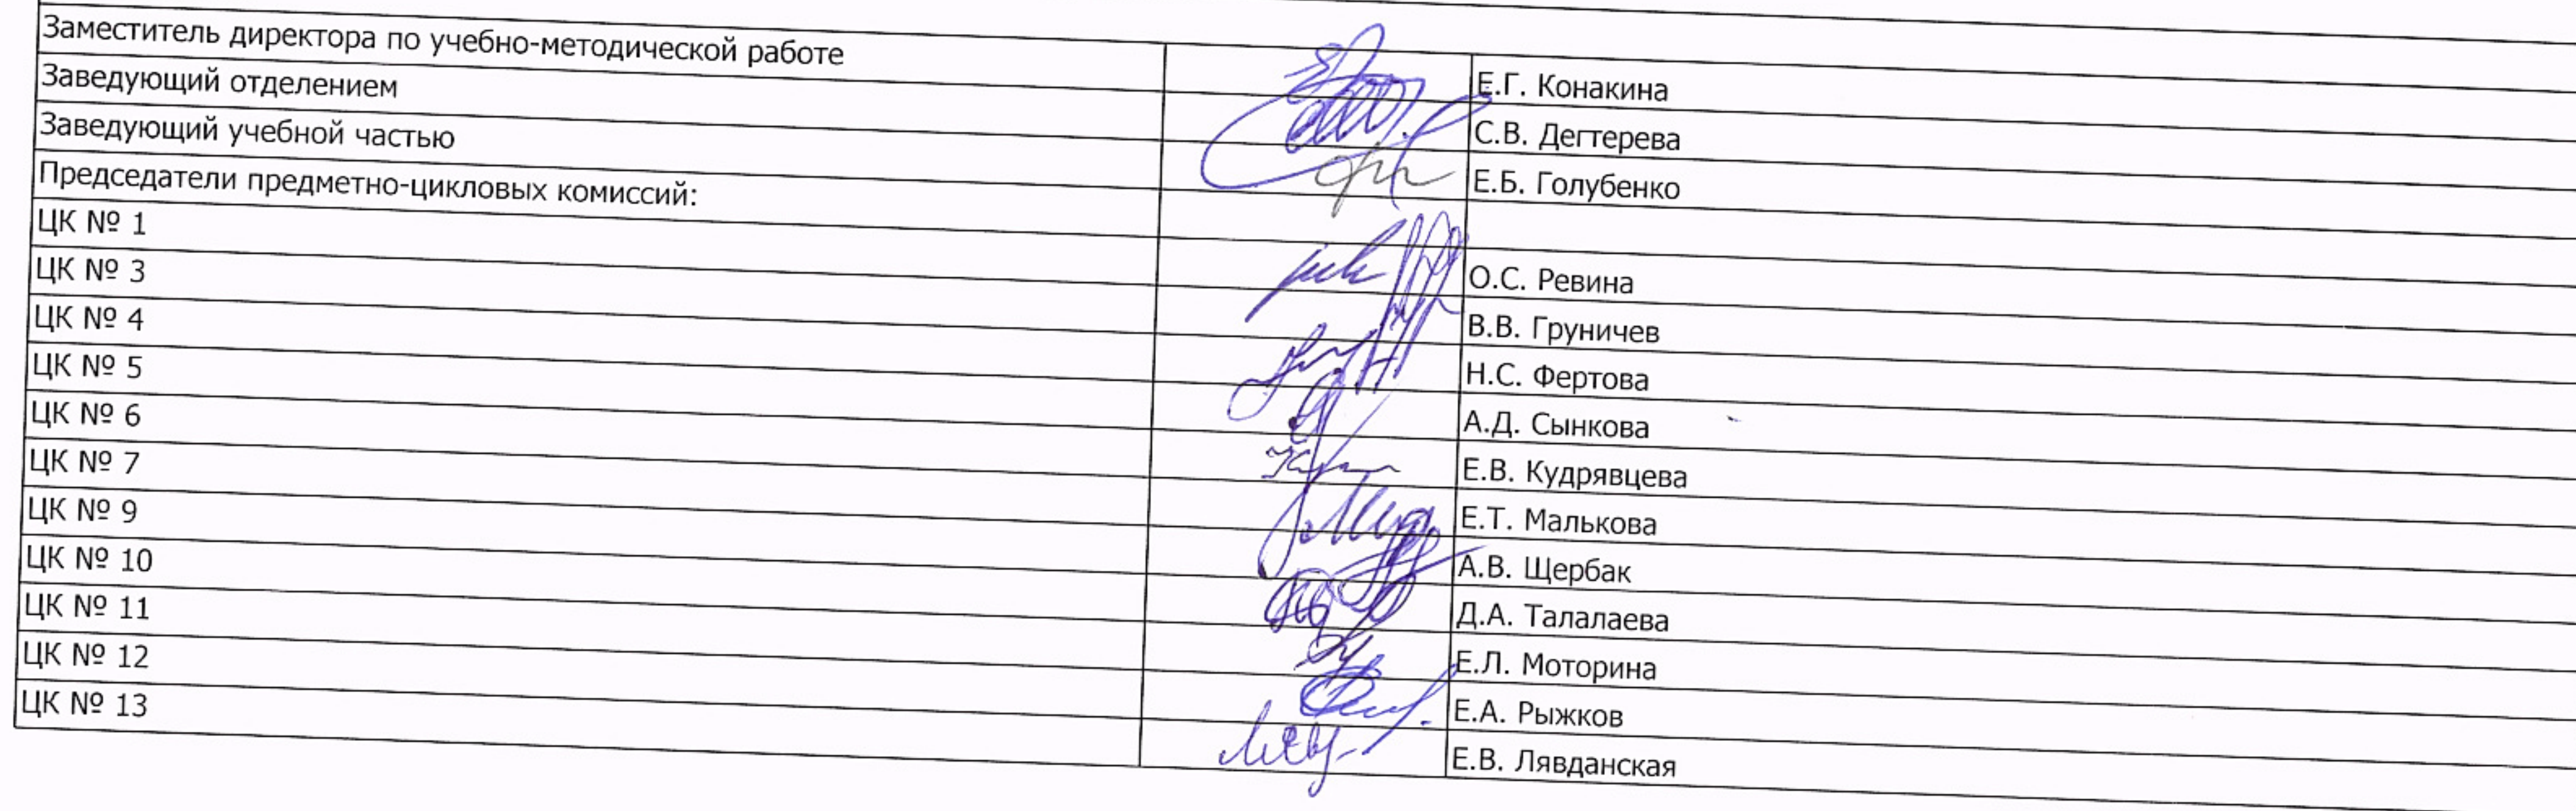 Заместитель директора по учебно-методической работе Е.Г. Конакина
Заведующий отделением С.В. Дегтерева
Заведующий учебной частью Е.Б. Голубенко
Председатели предметно-цикловых комиссий:
ЦК № 1 О.С. Ревина
ЦК № 3 В.В. Груничев
ЦК № 4 Н.С. Фертова
ЦК № 5 А.Д. Сынкова
ЦК № 6 Е.В. Кудрявцева
ЦК № 7 Е.Т. Малькова
ЦК № 9 А.В. Щербак
ЦК № 10 Д.А. Талалаева
ЦК № 11 Е.Л. Моторина
ЦК № 12 Е.А. Рыжков
ЦК № 13 Е.В. Лявданская